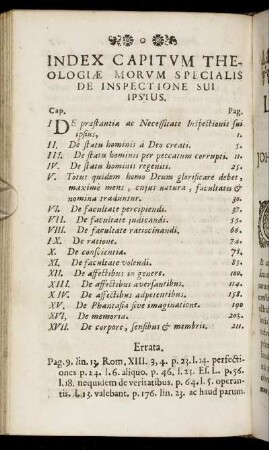 INDEX CAPITVM THE-
OLOGIÆ MORVM SPECIALIS
DE INSPECTIONE SUI
IPSIUS.
Cap. Pag.
I DE præstantia ac Necessitate Inspectionis sui
ipsius, 1.
II. De statu hominis a Deo creati. 5.
III. De statu hominis per peccatum corrupti. 11.
IV. De statu hominis regeniti. 25.
V. Totus quidem homo Deum glorificare debet,
maxime mens, cujus natura, facultates &
nomina traduntur. 30.
VI. De facultate percipiendi. 37.
VII. De facultate judicandi. 55.
VIII. De facultate ratiocinandi. 66.
IX. De ratione. 74.
X. De conscientia. 78.
XI. De facultate volendi. 85.
XII. De affectibus in genere. 100.
XIII. De affectibus aversantibus. 114.
XIV. De affectibus adpetentibus. 158.
XV. De Phantasia sive imaginatione. 190
XVI. De memoria. 203.
XVII. De corpore, sensibus & membris. 211.
Errata.
Pag. 9. lin. 13. Rom. XIII. 3, 4. p. 23. l. 14. perfecti-
ones p. 24. l. 6. aliquo. p. 46. l. 23. Ef. L. p. 56.
l. 18. nequidem de veritatibus. p. 64. l. 5. operan-
tis. l. 13. valebant. p. 176. lin. 23. ac haud parum.